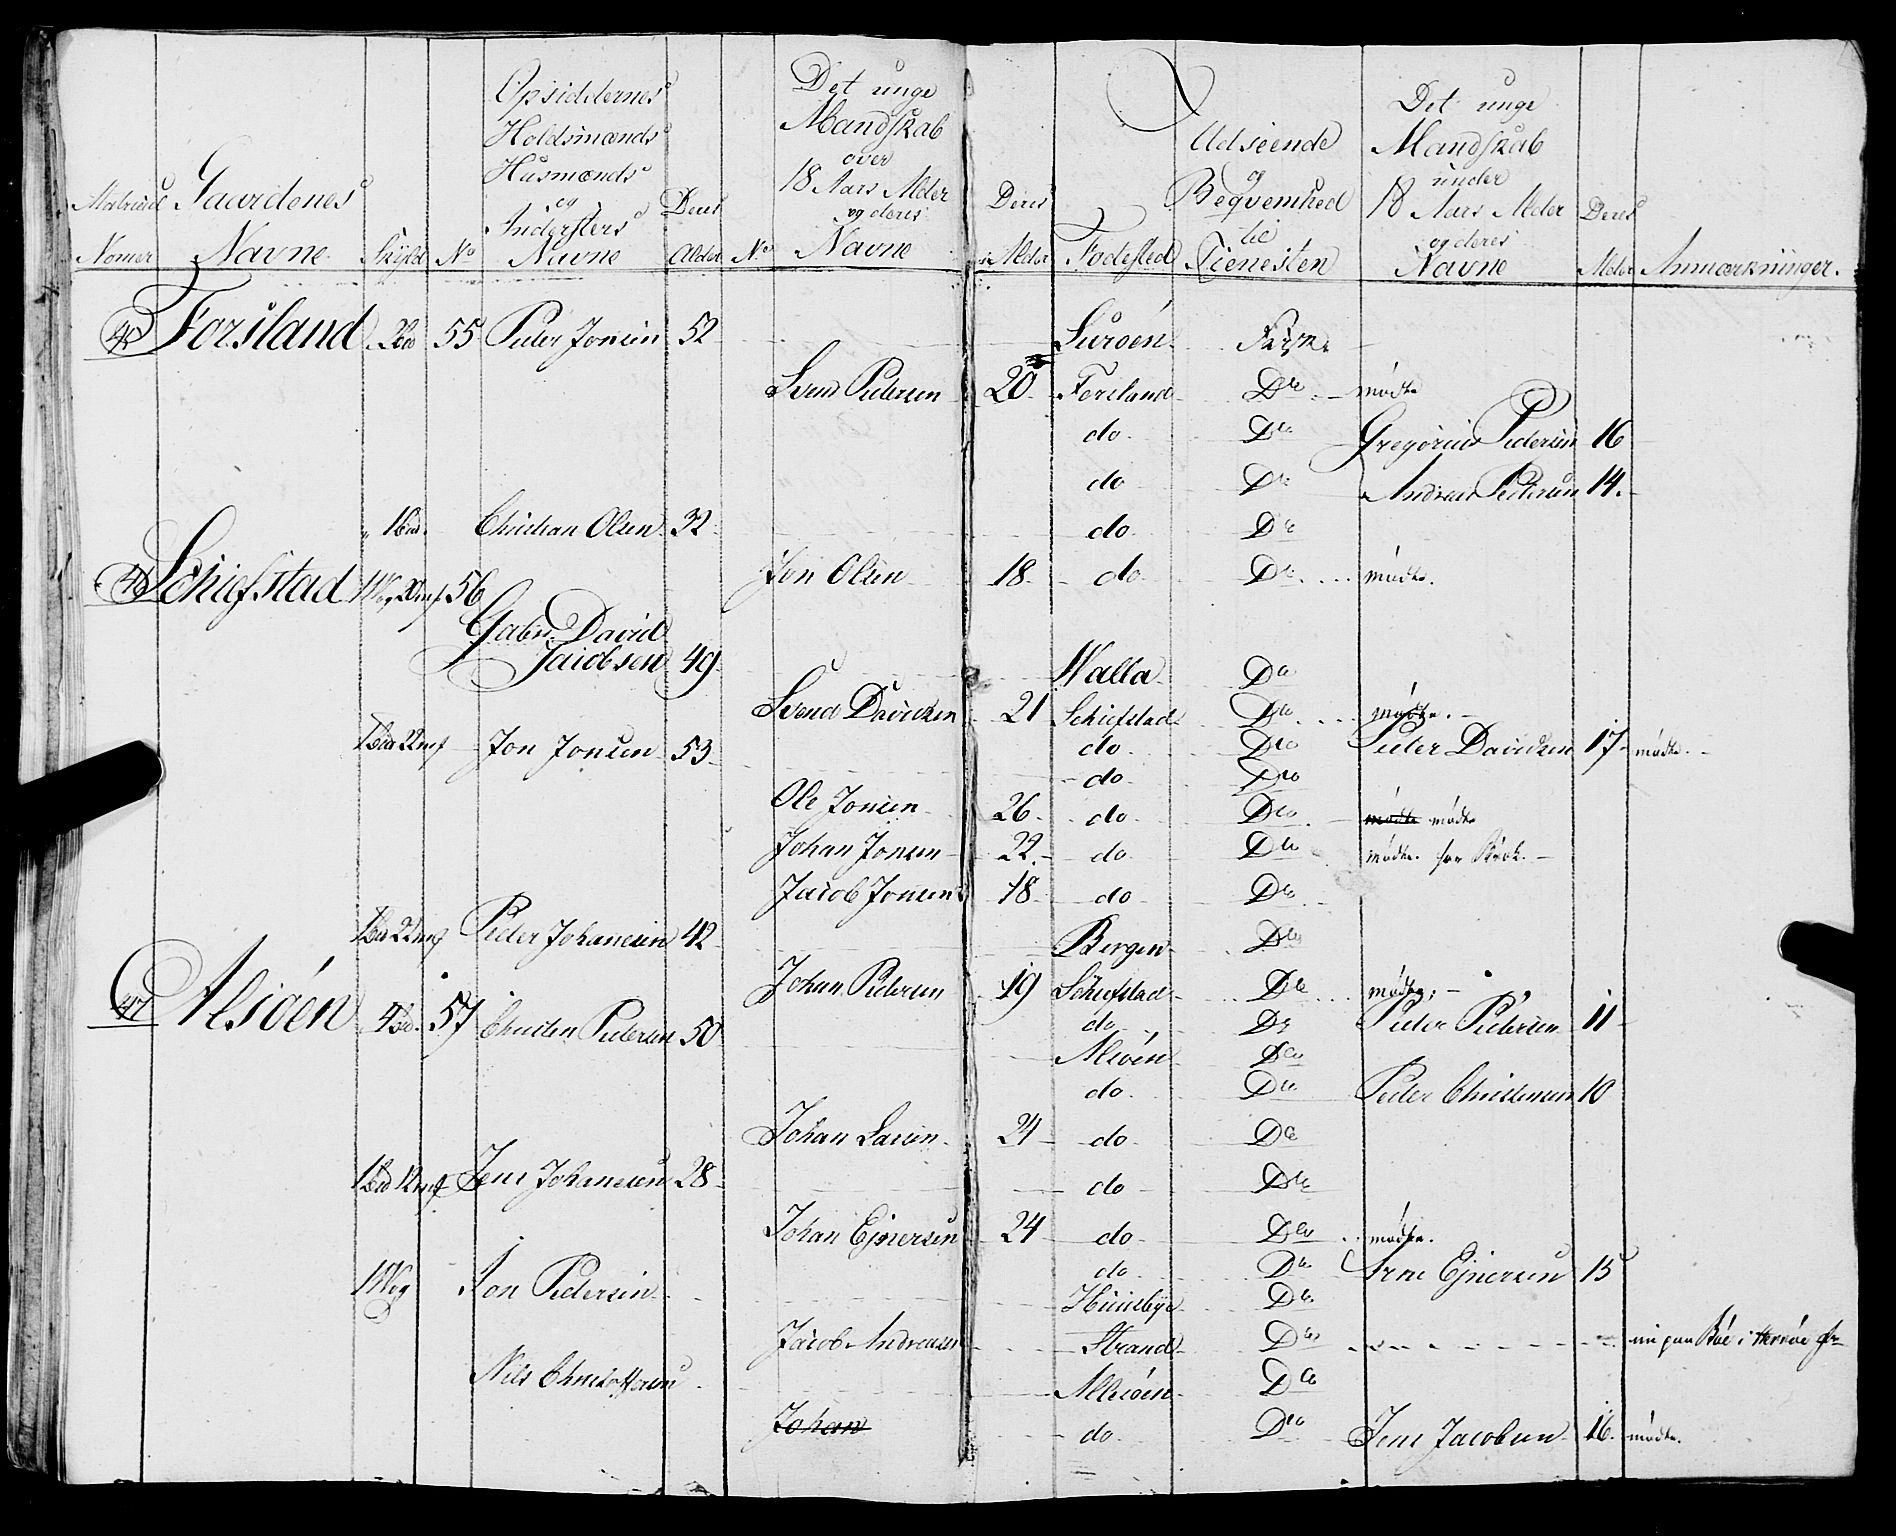 Matricul Nomer
Gaardenes Navne
Skyld
No
Opsiddernes Holdsmænds Husmænds og Indersters Navne
Deres Alder
No
Det unge Mandskab over 18 Aars Alder og deres Navne
Deres Alder
Fødested
Udseende og Beqvemhed til Tienesten
Det unge Mandskab under 18 Aars Alder og deres Navne
Deres Alder
Anmærkninger.
Forsland 55 Peder Jonsen 52 Surøen
Svend Pedersen 20 Forsland Do mødte
do Do Gregorius Pedersen 16
do Do Andreas Pedersen 14.
Christian Olsen 32 do Do
Schiefstad 56 Jon Olsen 18 do Do mødte.
Gabr. David
Jacobsen 49 Walla Do
Svend Davidsen 21 Schiefstad Do mødte.
do Do Peder Davidsen 17 mødte.
Jon Jonsen 53 do Do
Ole Jonsen 26 do Do mødte mødte
Johan Jonsen 22 do Do mødte for
Jacob Jonsen 18 do Do
Peder Johannesen 42 Bergen Do
Johan Pedersen 19 Schiefstad Do mødte.
47 Alsøen 57 do Do Peder Pedersen 11
Christen Pedersen 50 Alsøen Do
do Do Peder Christensen 10
Johan Larsen 24 do Do
Jens Johannesen 28 do Do
Johan Ejnersen 24 do Do mødte.
do Do Arne Ejnersen 15
1 Wog Jon Pedersen Huusbye Do
Jacob Andreasen Strand Do
Nils Christoffersen Alsøen Do
Johan do Do Jens Jacobsen 16. mødte.